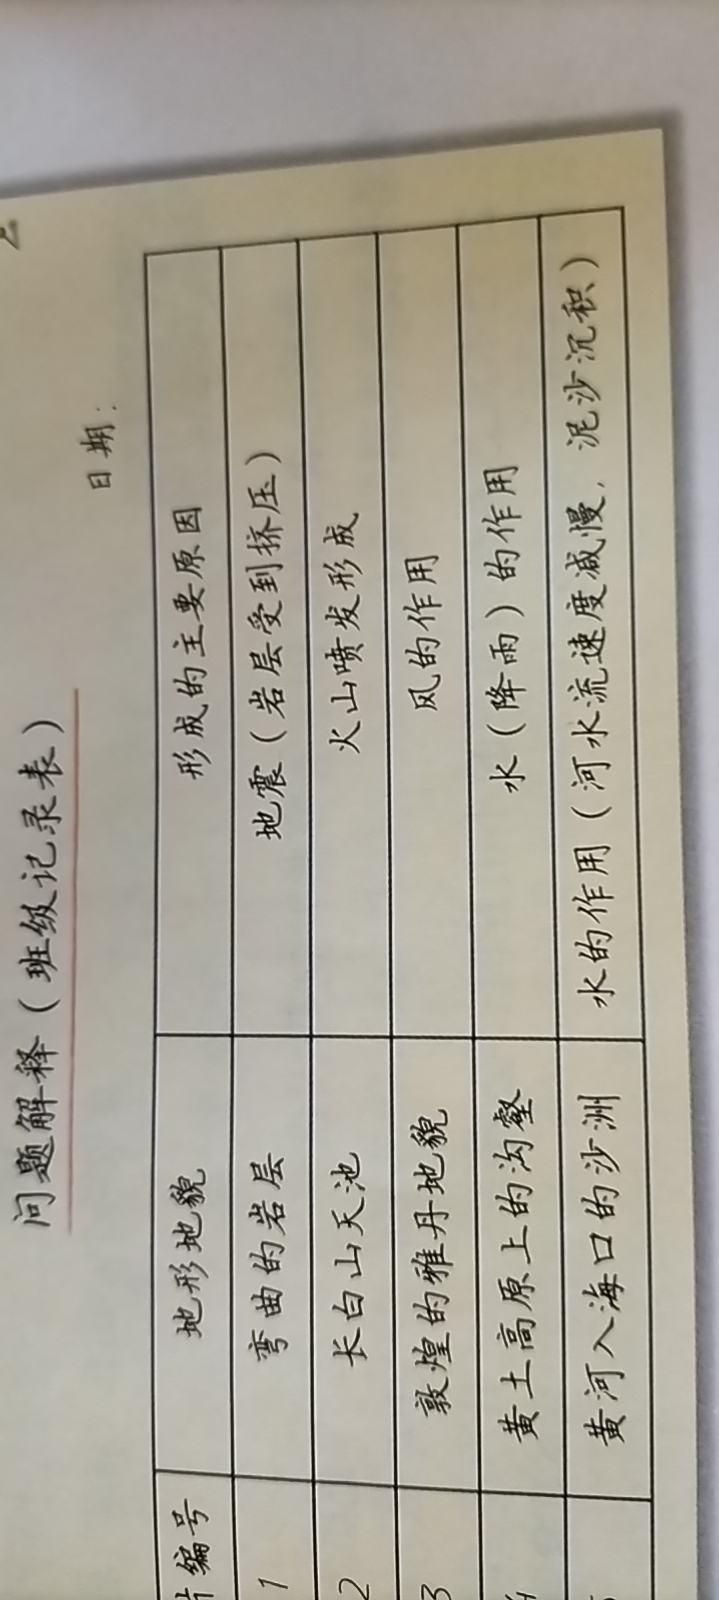 问题解释（班级记录表）
日期：
编号 地形地貌 形成的主要原因
1 弯曲的岩层 地震（岩层受到挤压）
2 长白山天池 火山喷发形成
3 敦煌的雅丹地貌 风的作用
4 黄土高原上的沟壑 水（降雨）的作用
黄河入海口的沙洲 水的作用（河水流速度减慢，泥沙沉积）